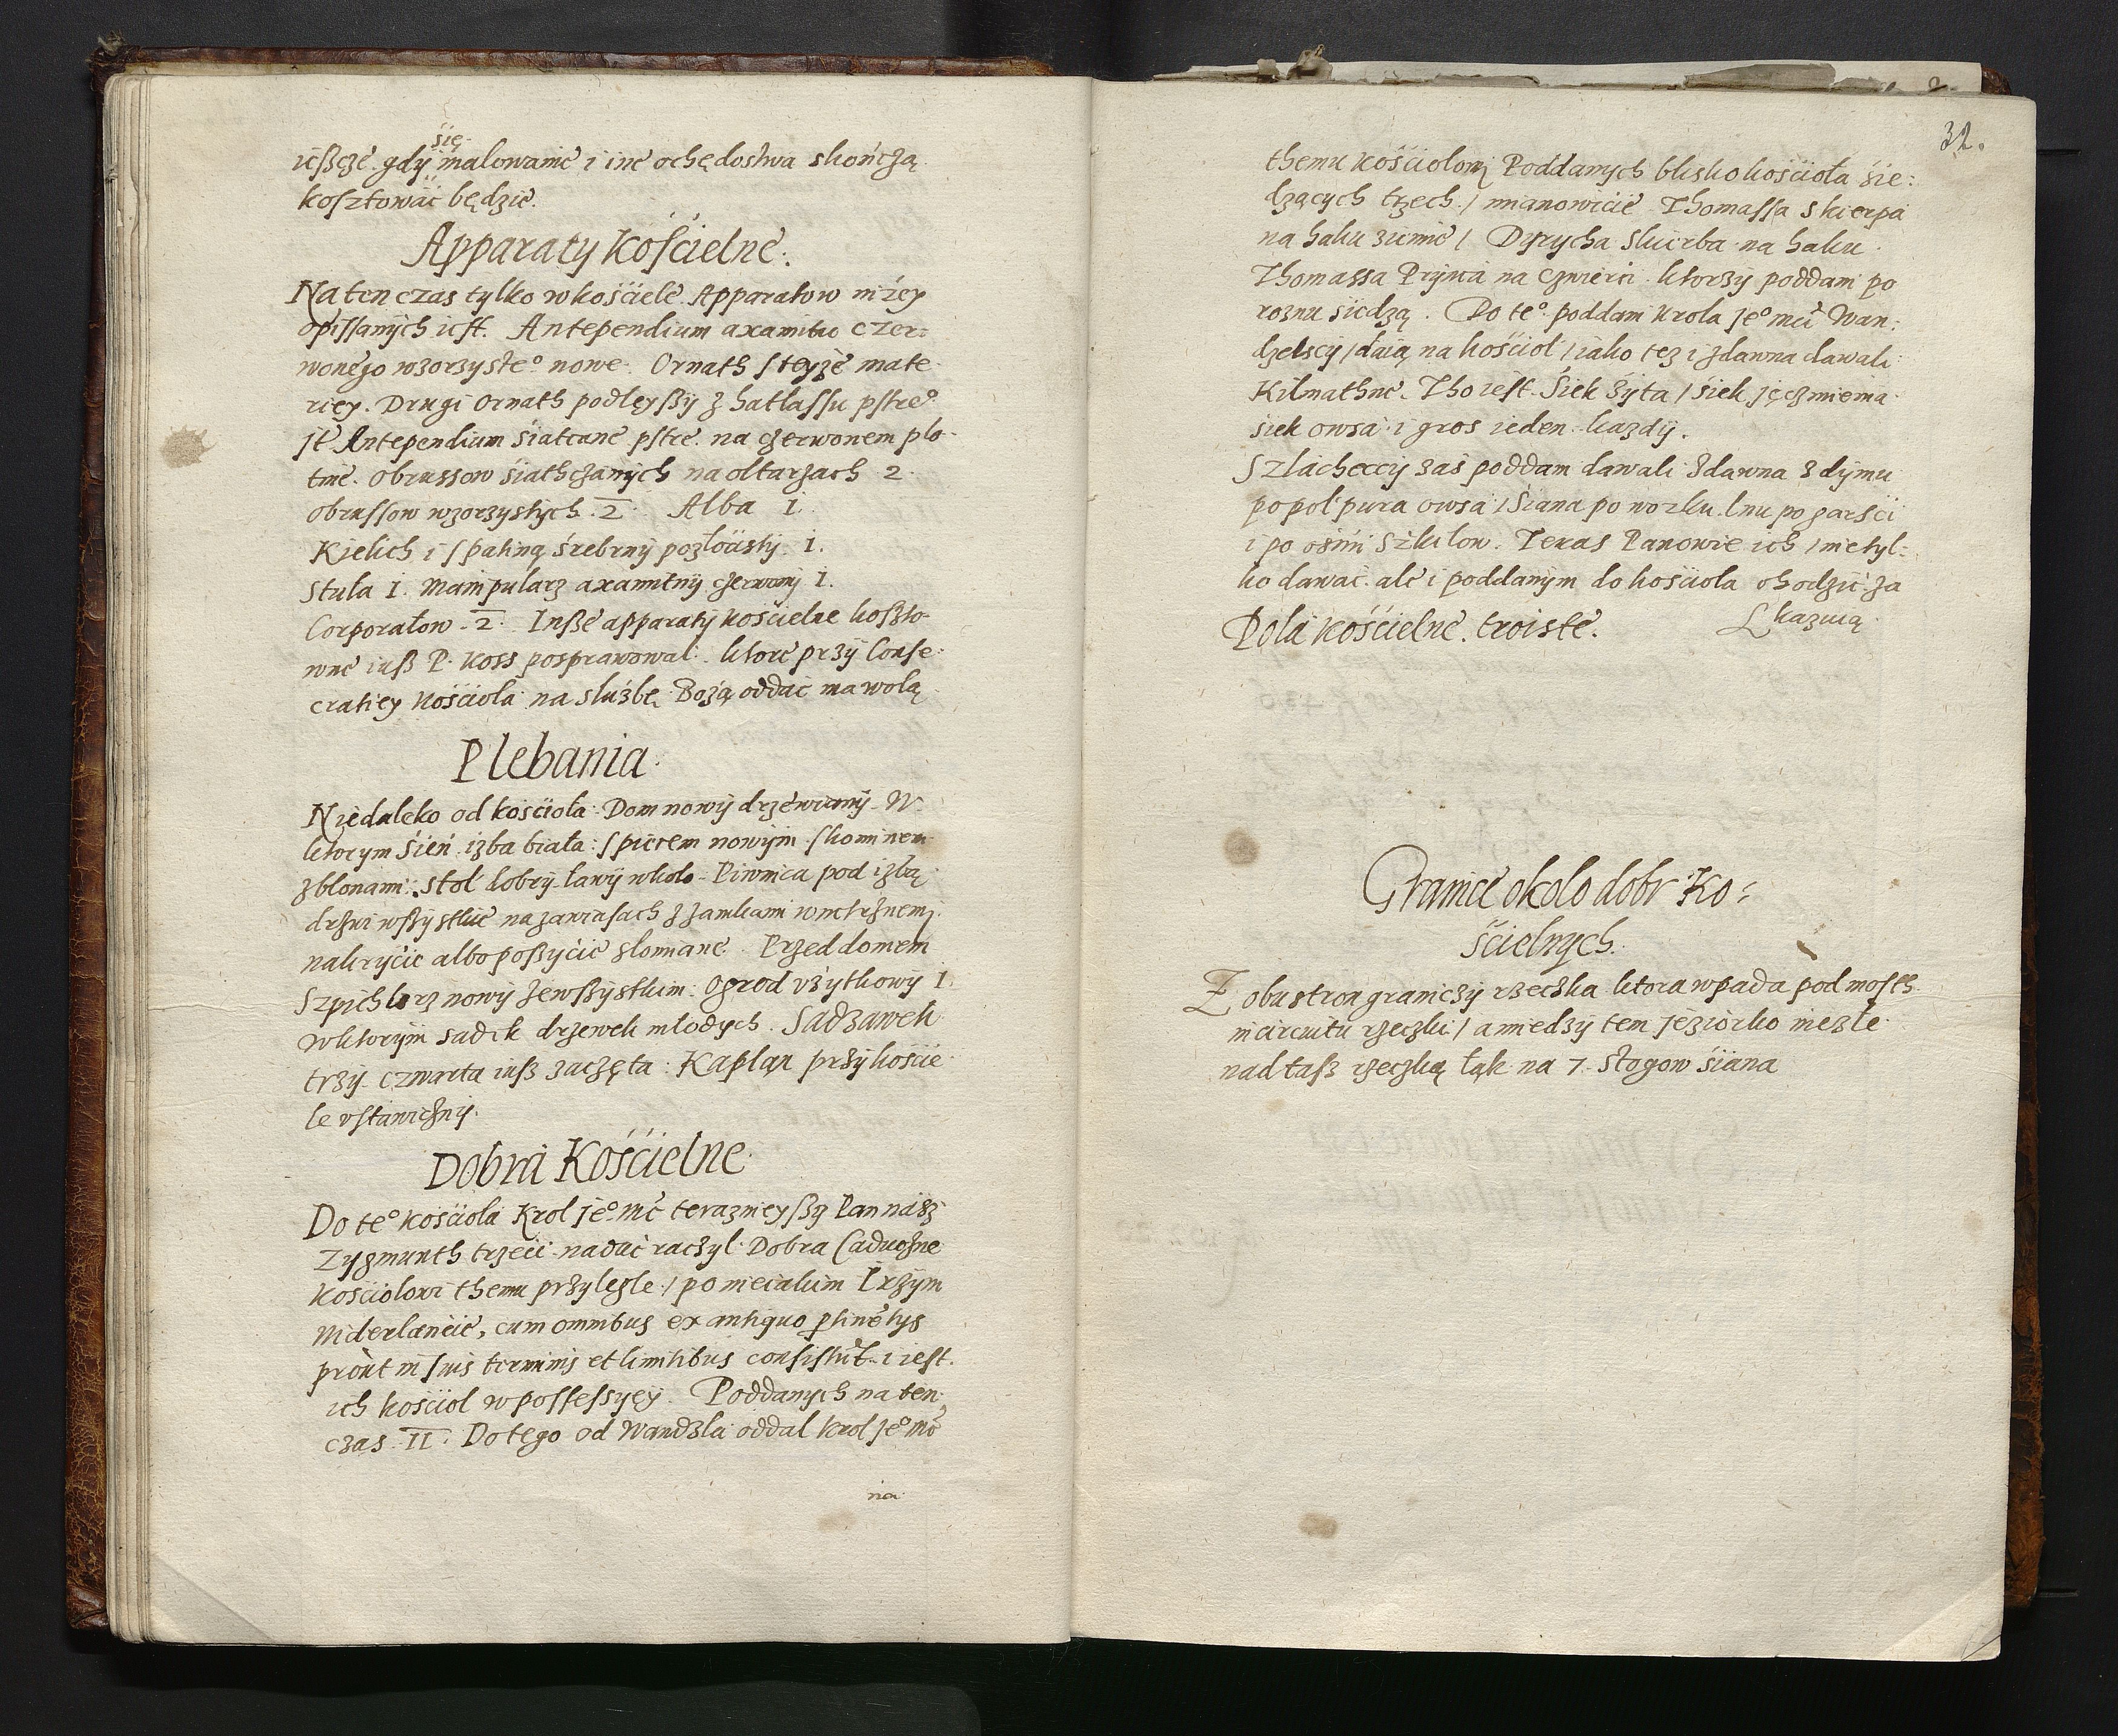 się
ießcże gdÿ malowanie i ine ochędostwa skończą
kosztować będzie.
Apparaty Kościelne.
Na ten czas tylko w kościele Apparatow niżey
opissanÿch iest. Antependium axamitu czer:
wonego wzorzyste° nowe. Ornath steyże mate
riey. Drugi Ornath podleyßÿ z hatlassu pstre°
Jt Antependium siatcane pstre na czerwonem plo-
tnie. Obrussow siathczanÿch na oltarzach 2.
obrussow wzorzystych 2. Alba 1.
Kielich i spatiną śrebrnÿ pozłoċistÿ 1.
Stuła 1. Manipularz axamitnÿ czerwonÿ 1.
Corporałow 2. Inße apparatÿ kościelne koßto-
wne iuß P. Koss posprawował. ktore przÿ Conse-
cratiey Kościoła na służbę Bożą oddać ma wolą
Plebania.
Niedaleko od kościoła Dom nowÿ drzewianÿ. W
ktorym śień izba biała: spiecem nowÿm skominem
zblonami. Stoł dobrÿ ławÿ wkoło. Piwnica pod izbą
drzwi wßÿstkie na zawiasach z zamkami wnetrznemi
nakrÿcie albo poßÿcie słomiane. Przed domem
Szpichlerz nowÿ zewßÿstkim. Ogrod vżytkowy 1.
w ktorÿm sadek drzewek młodych. Sadzawek
trzÿ. czwarta iuß zaczęta: Kapłan przÿ kościе
le vstawicznÿ.
Dobra Kościelne
Do te° kościoła Krol Je° Mć teraznieyßy Pan nasz
Zygmunth trzeci nadać raczÿl Dobra Caduczne
kościołowi themu przÿległe / po nieiakim Irzÿm
Niderlencie, cum omnibus ex antiquo ptinētÿs
prout in suis terminis et limitibus consistūt. i iest
ich kościoł w possessÿeÿ. Poddanych na ten
czas II. Do tego od Wandzla oddał Krol Je° Mć
na
32.
themu kościołowi Poddanych blisko kościoła sie:
dzących trzech / mianowicie Thomassa Skierpa
na haku ziemie / Dyrycha Skierba na haku
Thomassa Prÿwa na czwierci. ktorzy poddani po
roznu siedzą. Do te° poddani Krola Je° Mci Wan:
dzelscÿ / daią na kościoł / iako tez i zdawna dawali
Kilmathne. Tho iest. Siek żÿta / siek jęczmienia
siek owsa i gros ieden kazdÿ.
Szlacheccÿ zas poddani dawali zdawna z dÿmu
po poł pura owsa / Siana po wozku. lnu po garsci
i po ośmi Szkiłow. Teras Panowie ich / nie tyl-
ko dawać. ale i poddanÿm do kościoła chodzić za
kazuią
Pola Kościelne troiste.
Granice okolo dobr Ko:
ścielnych.
Z obu stron graniczÿ rzeczka ktora wpada pod mosth
in circuitu rzeczki / a miedzÿ tem Jeziorko niezłe
nad tasz rzeczką łąk na 7. Stogow siana